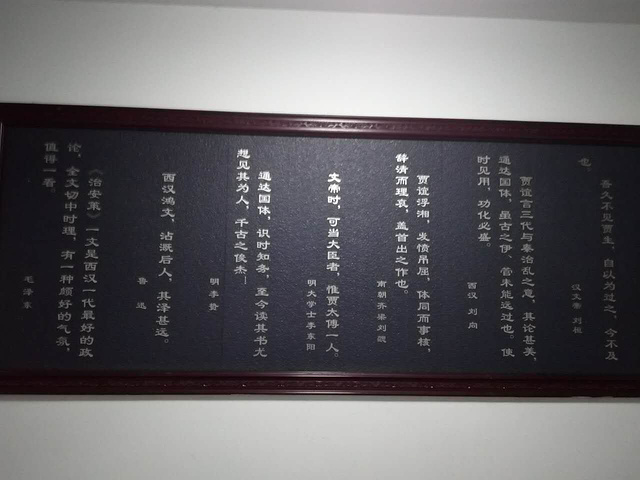 吾久不见贾生，自以为过之，今不及
也。
汉文帝 刘恒
贾谊言三代与秦治乱之意，其论甚美，
通达国体，虽古之伊、管未能远过也。使
时见用，功化必盛。
西汉 刘向
贾谊浮湘，发愤吊屈，体同而事核，
辞清而理哀，盖首出之作也。
南朝齐梁 刘勰
文帝时，可当大臣者，惟贾太傅一人。
明大学士 李东阳
通达国体，识时知务，至今读其书尤
想见其为人，千古之俊杰—
明 李贽
西汉鸿文，沾溉后人，其泽甚远。
鲁迅
《治安策》一文是西汉一代最好的政
论，全文切中时理，有一种颇好的气氛，
值得一看。
毛泽东